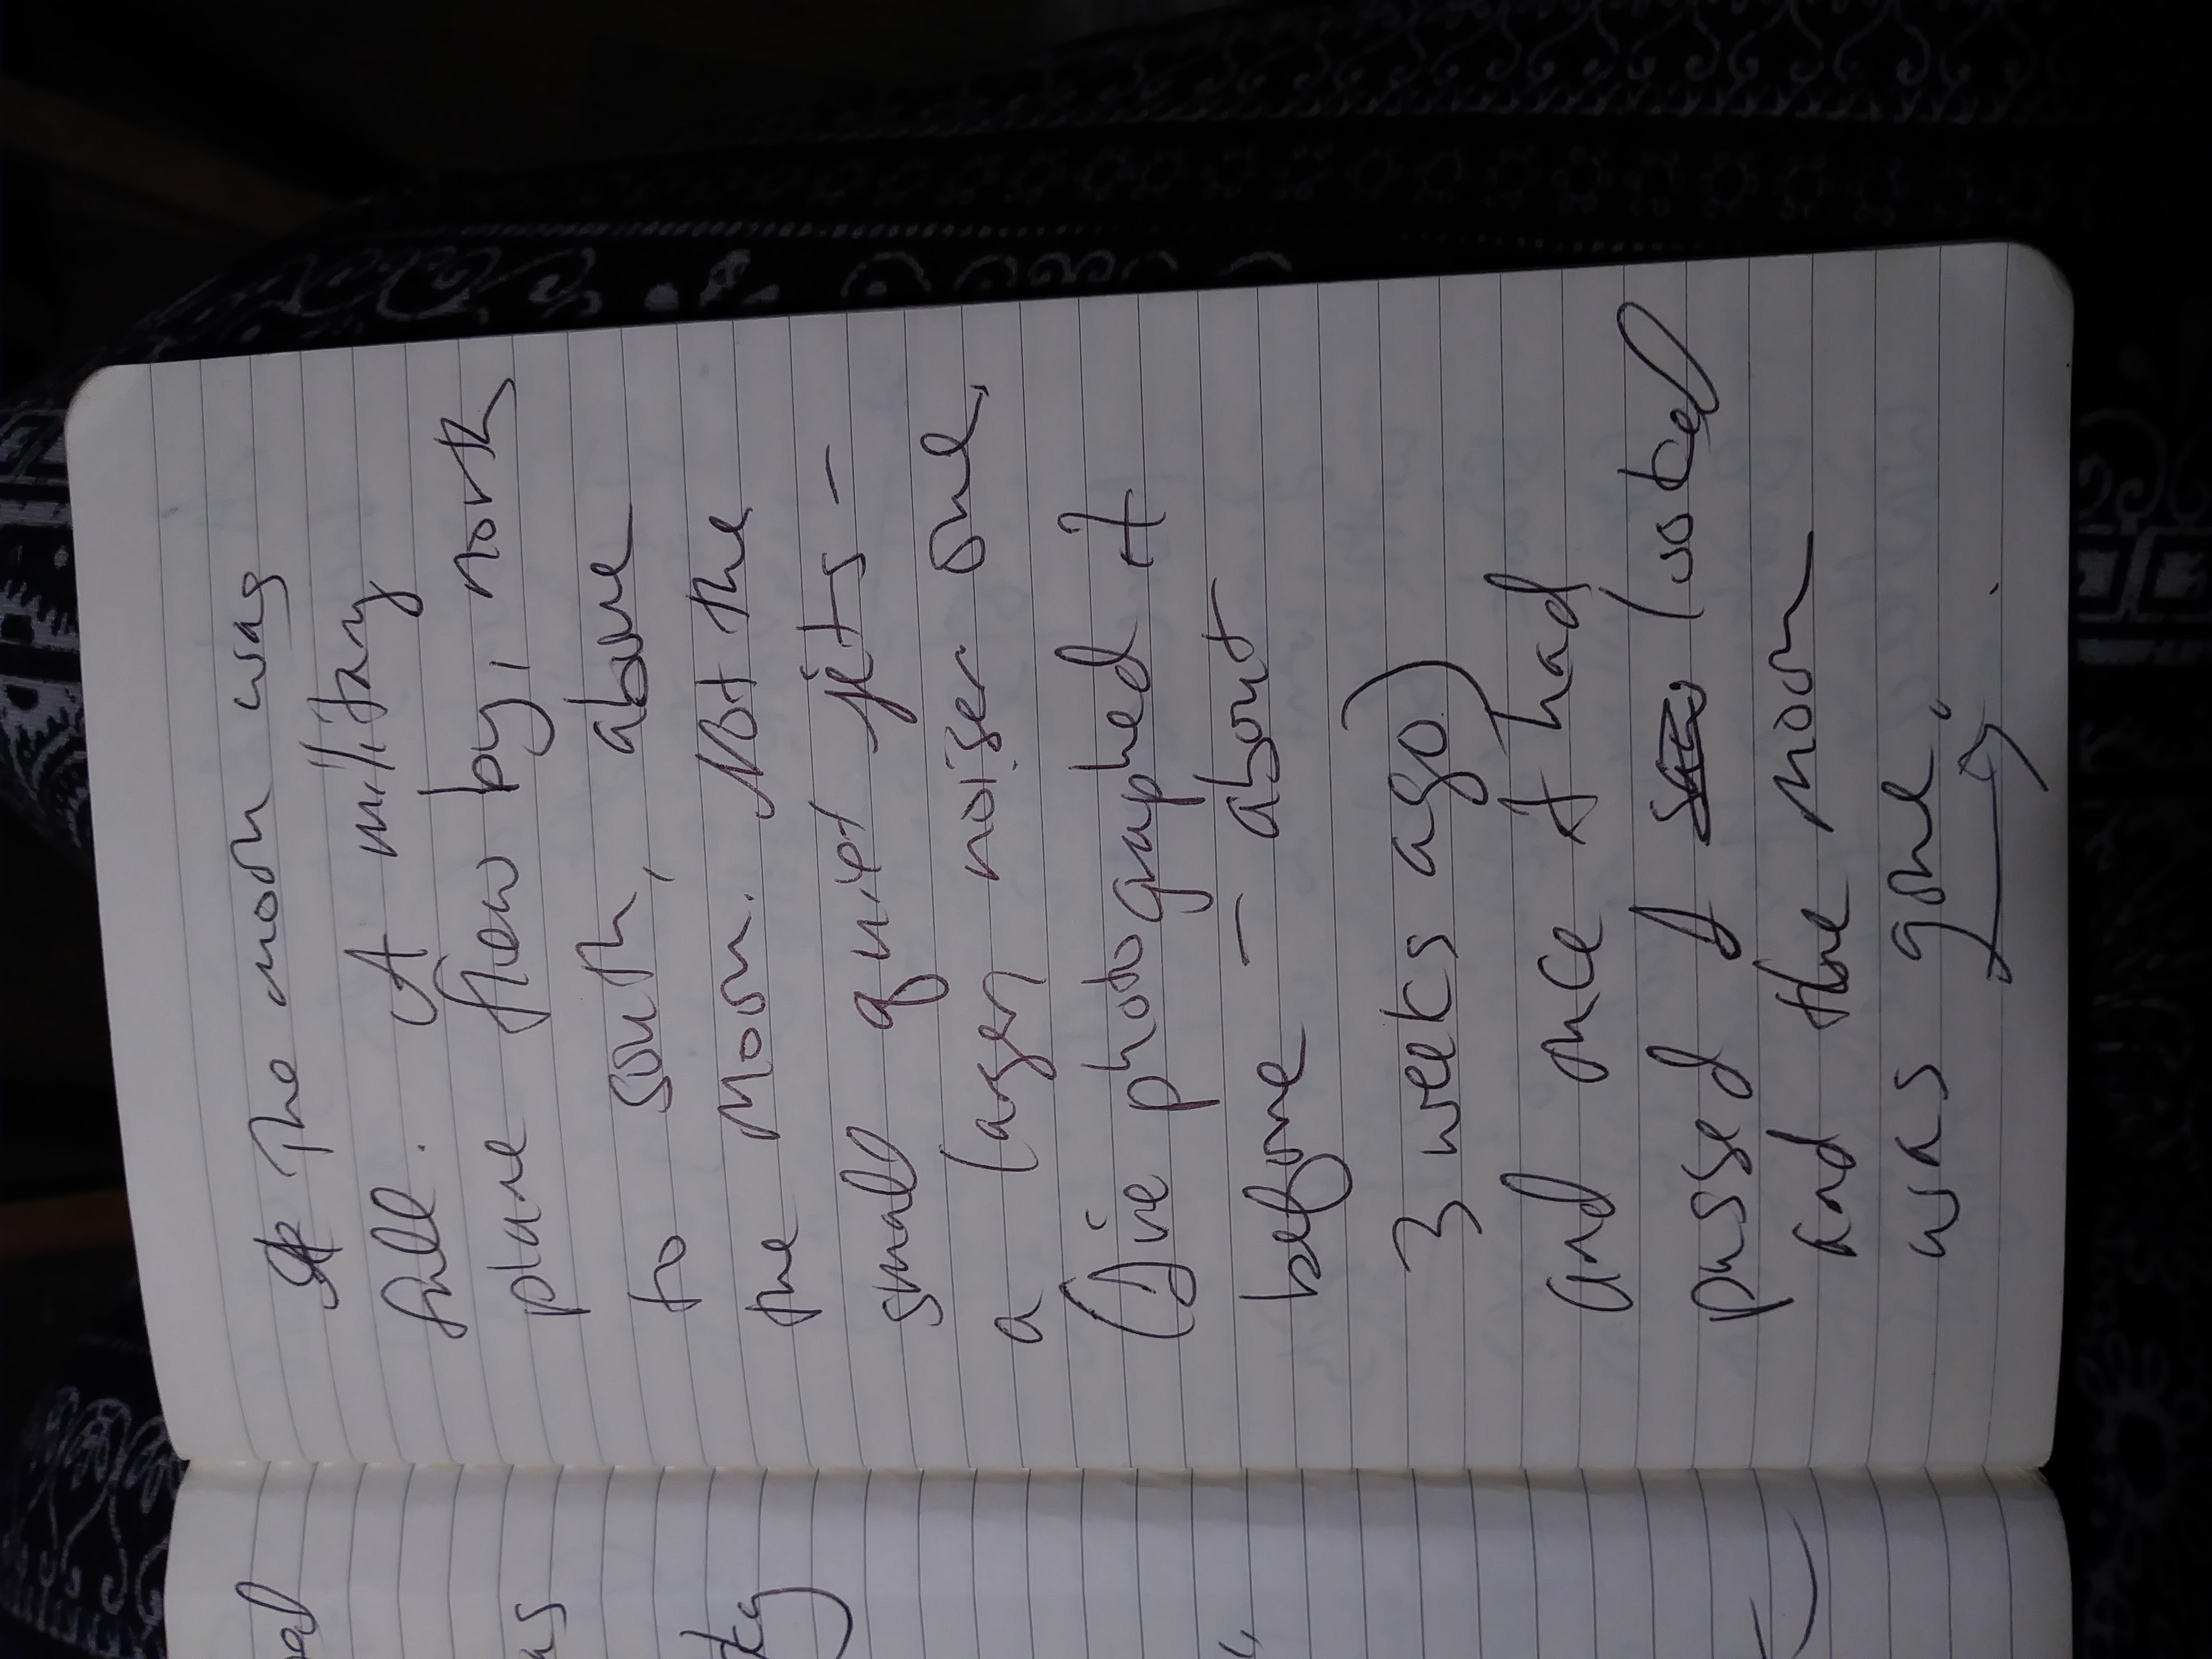 The moon was
full. A military
plane flew by, north
to south, above
the moon. Not the
small quiet jets -
a larger noiser one,
(I've photographed it
before - about
3 weeks ago)
and once it had
passed I looked
and the moon
was gone.